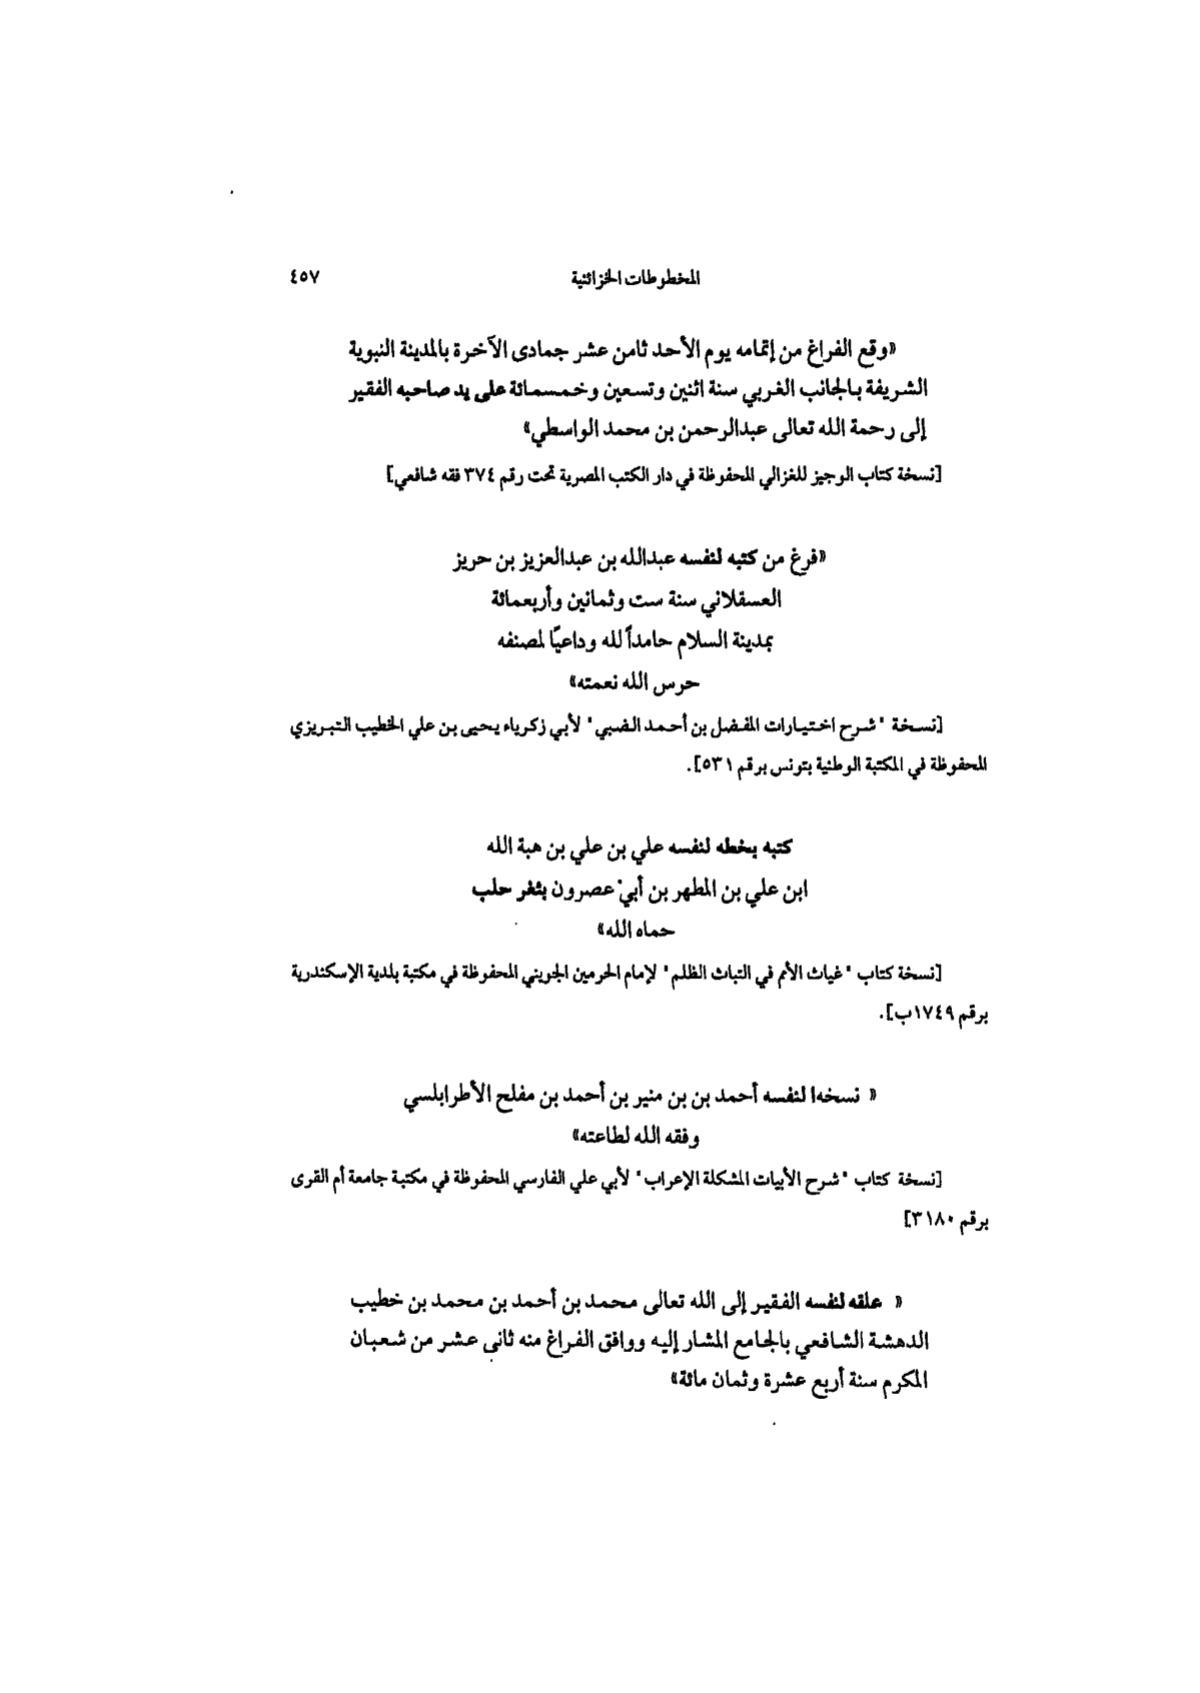 المخطوطات الخزائنية ٤٥٧
«وقع الفراغ من إتمامه يوم الأحد ثامن عشر جمادى الآخرة بالمدينة النبوية
الشريفة بالجانب الغربي سنة اثنين وتسعين وخمسمائة على يد صاحبه الفقير
إلى رحمة الله تعالى عبدالرحمن بن محمد الواسطي»
[نسخة كتاب الوجيز للغزالي المحفوظة في دار الكتب المصرية تحت رقم ٣٧٤ فقه شافعي]
«فرغ من كتبه لنفسه عبدالله بن عبدالعزيز بن حريز
العسقلاني سنة ست وثمانين وأربعمائة
بمدينة السلام حامداً لله وداعيًا لمصنفه
حرس الله نعمته»
[نسخة "شرح اختيارات المفضل بن أحمد الضبي" لأبي زكرياء يحيى بن علي الخطيب التبريزي
المحفوظة في المكتبة الوطنية بتونس برقم ٥٣١].
كتبه بخطه لنفسه علي بن علي بن هبة الله
ابن علي بن المطهر بن أبي عصرون بثغر حلب
حماه الله»
[نسخة كتاب "غياث الأمم في التياث الظلم" لإمام الحرمين الجويني المحفوظة في مكتبة بلدية الإسكندرية
برقم ١٧٤٩ب].
« نسخه‍ا لنفسه أحمد بن بن منير بن أحمد بن مفلح الأطرابلسي
وفقه الله لطاعته»
[نسخة كتاب "شرح الأبيات المشكلة الإعراب" لأبي علي الفارسي المحفوظة في مكتبة جامعة أم القرى
برقم ٣١٨٠]
« علقه لنفسه الفقير إلى الله تعالى محمد بن أحمد بن محمد بن خطيب
الدهشة الشافعي بالجامع المشار إليه ووافق الفراغ منه ثاني عشر من شعبان
المكرم سنة أربع عشرة وثمان مائة»